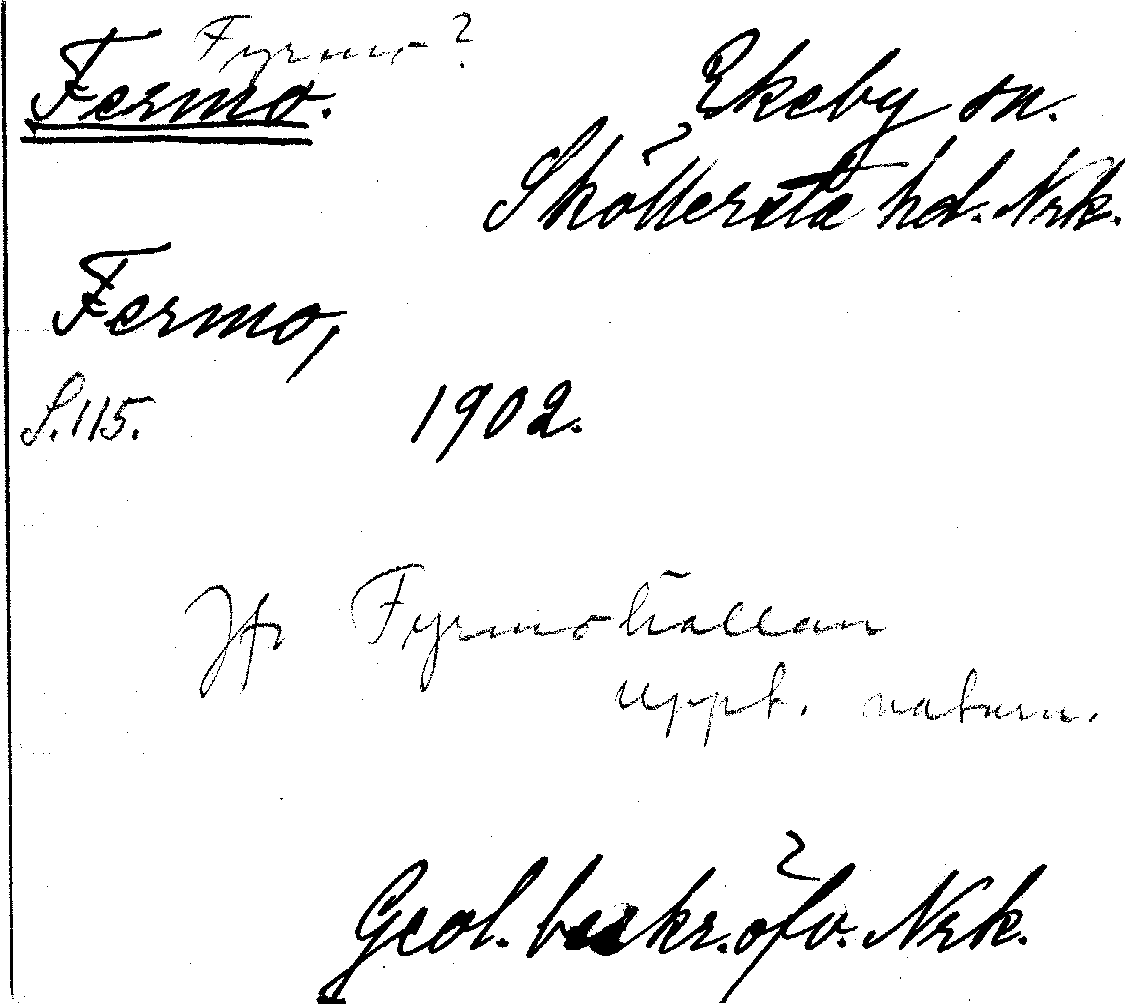 Fyrmo?
Fermo.
Ekeby sn.
Sköllersta hd. Nrk.
Fermo,
S. 115.
1902.
Jfr Fyrmohällan
uppt. naturn.
Geol. beskr. öfv. Nrk.